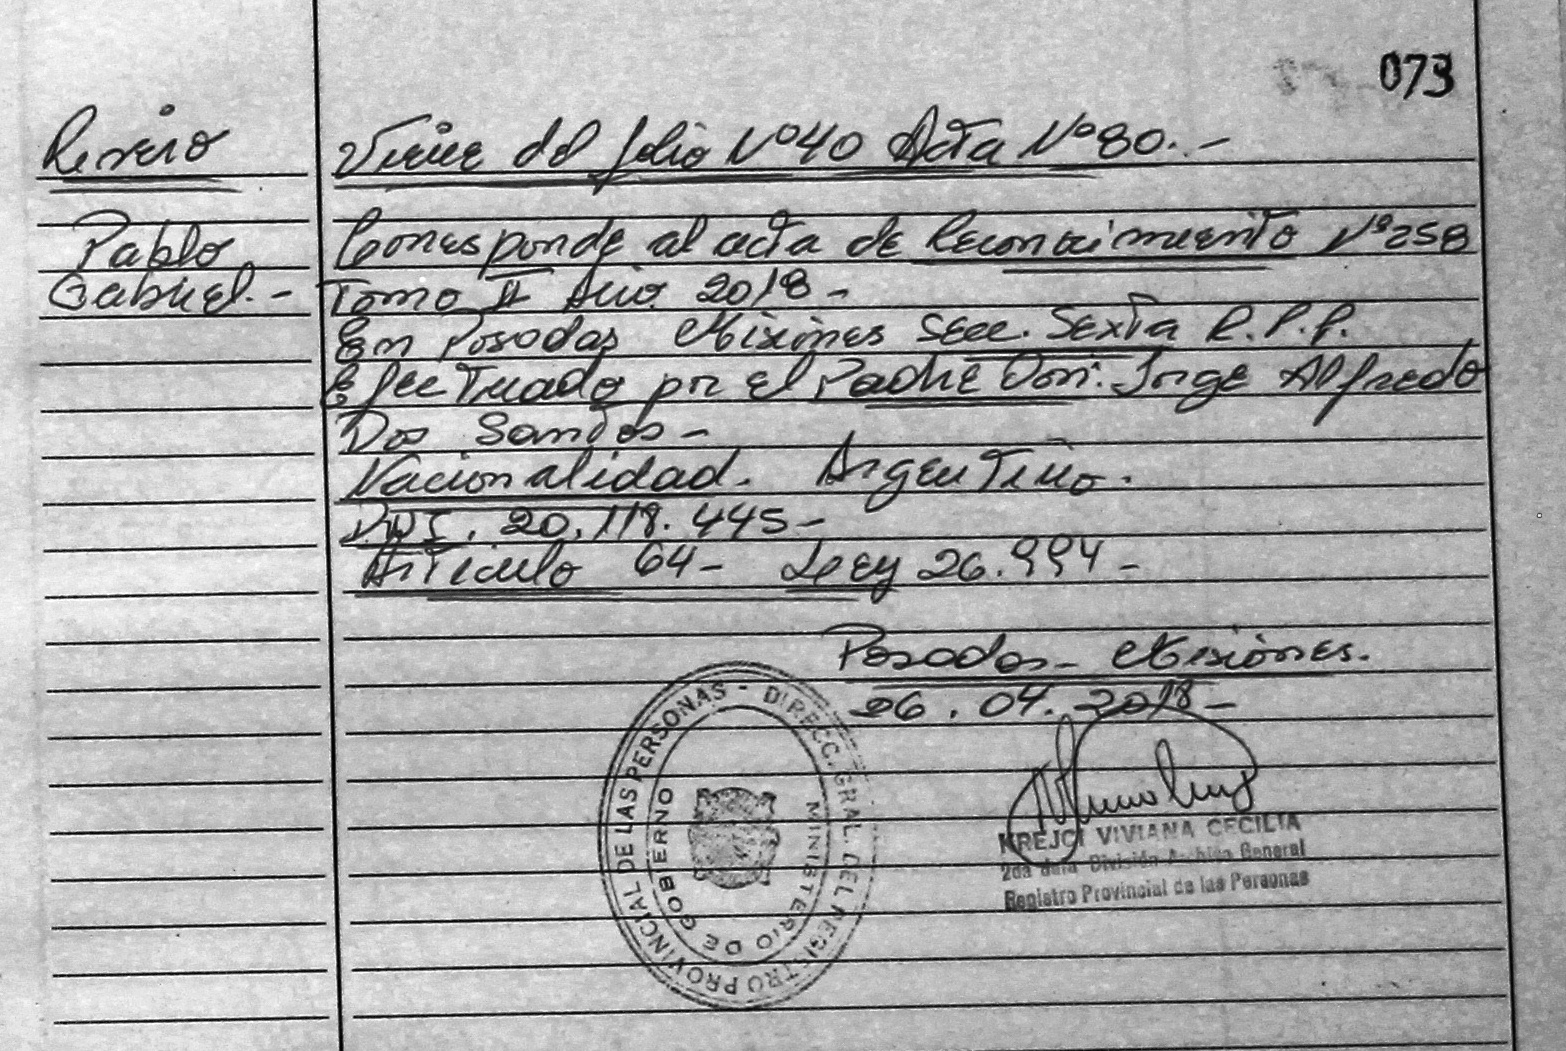 073
Viene del folio Nº40 Acta Nº80.-
Pablo
Gabriel.-
Corresponde al acta de Reconocimiento Nº258
Tomo II Año 2018-
En Posadas Misiones Secc. Sexta R.P.P.
Efectuado por el Padre Don: Jorge Alfredo
Dos Santos-
Nacionalidad. Argentino.
DNI. 20.118.445-
Articulo 64- Ley 26.994-
Posadas- Misiones.
26.04.2018-
DIRECC. GRAL. DEL REGISTRO PROVINCIAL DE LAS PERSONAS -
MINISTERIO DE GOBERNO
KREJCI VIVIANA CECILIA
División Archivo General
Registro Provincial de las Personas